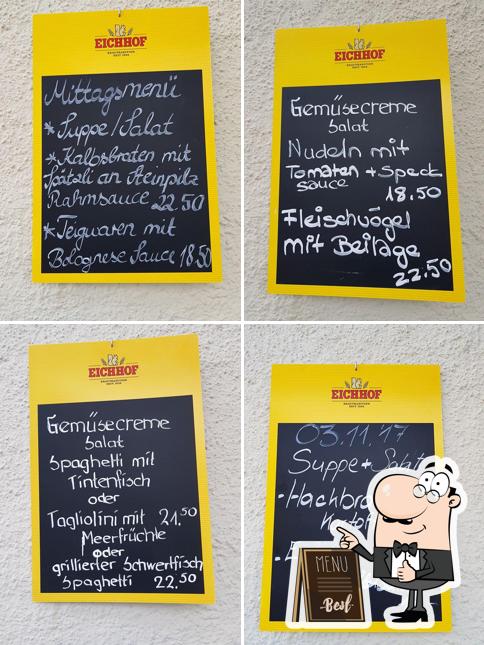 EICHHOF
Mittagsmenü
* Suppe/Salat
* Kalbsbraten mit
Spätzli an Steinpilz
Rahmsauce 22.50
* Teigwaren mit
Bolognese Sauce 18.50
EICHHOF
Gemüsecreme
Salat
Nudeln mit
Tomaten + Speck
sauce
18.50
Fleischvögel
mit Beilage
22.50
EICHHOF
Gemüsecreme
Salat
Spaghetti mit
Tintenfisch
oder
Tagliolini mit 21.50
Meerfrüchte
oder
grillierter Schwertfisch
Spaghetti 22.50
EICHHOF
03.11.17
Suppe +
MENU
Best